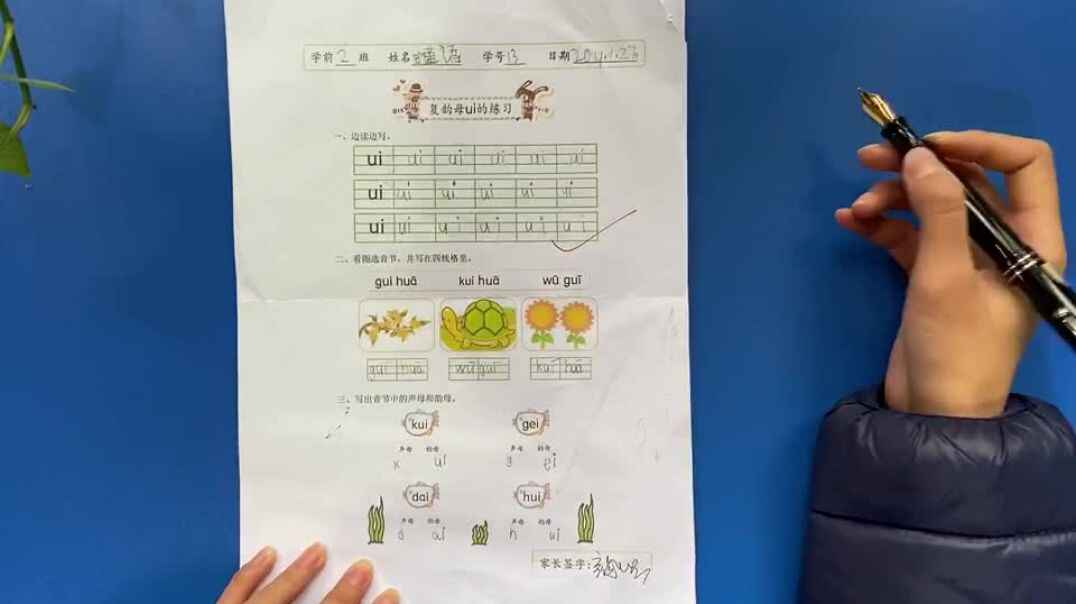 学前 2 班 姓名 语 学号 13 日期
复韵母ui的练习
一、边读边写。
ui ui ui ui ui ui
ui ui ui ui ui ui
ui ui ui ui ui ui
二、看图选音节，并写在四线格里。
guì huā kuí huā wū guī
guì huā wū guī kuí huā
三、写出音节中的声母和韵母。
kui gei
声母 韵母 声母 韵母
k ui g ei
dai hui
声母 韵母 声母 韵母
d ai h ui
家长签字：